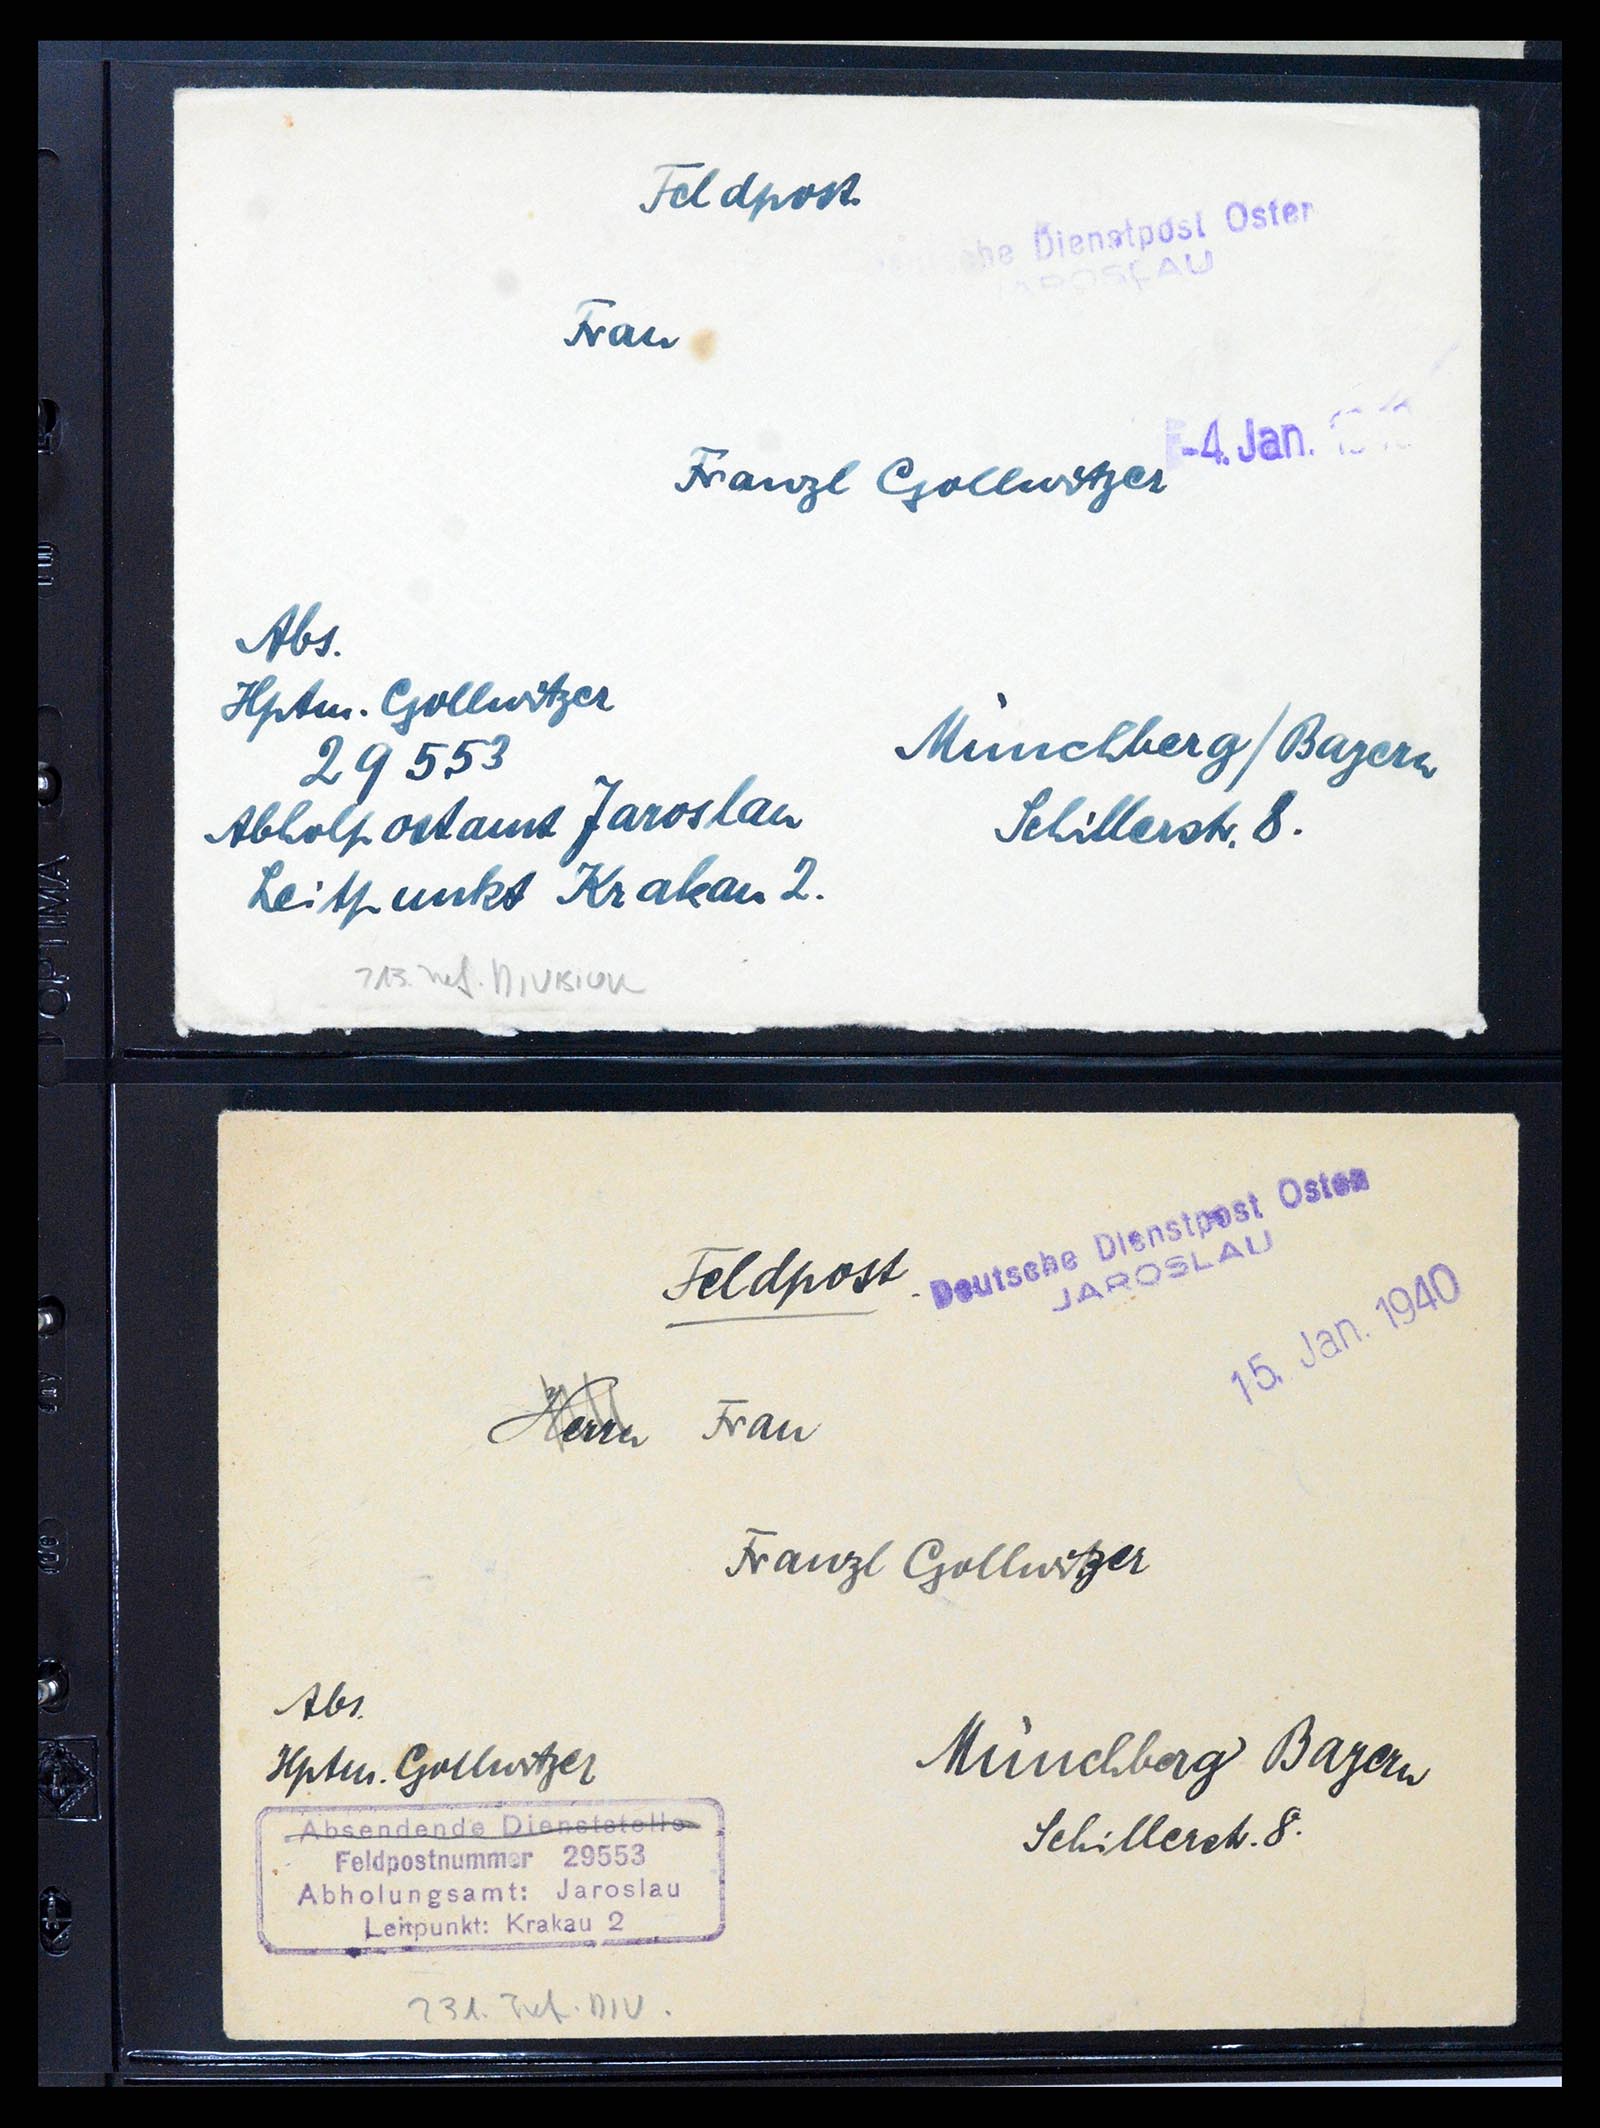 Feldpost
Dienstpost Osten
JAROSLAU
Frau
-4. Jan.
Franzl Gollwitzer
Abs.
Hptm. Gollwitzer
29553
Abholpostamt Jaroslau
Leitpunkt Krakau 2.
Münchberg/Bayern
Schillerstr. 8.
Inf. DIVISION
OPTIMA
Deutsche Dienstpost Osten
JAROSLAU
Feldpost
15. Jan. 1940
Herrn Frau
Franzl Gollwitzer
Abs.
Hptm. Gollwitzer
Absendende Dienststelle
Feldpostnummer 29553
Abholungsamt: Jaroslau
Leitpunkt: Krakau 2
Münchberg Bayern
Schillerstr. 8.
231. Inf. DIV.